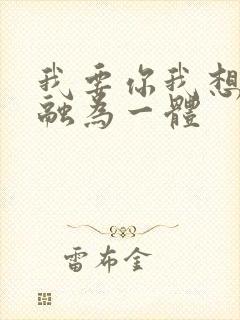 我要你我想
融為一體
雷布金